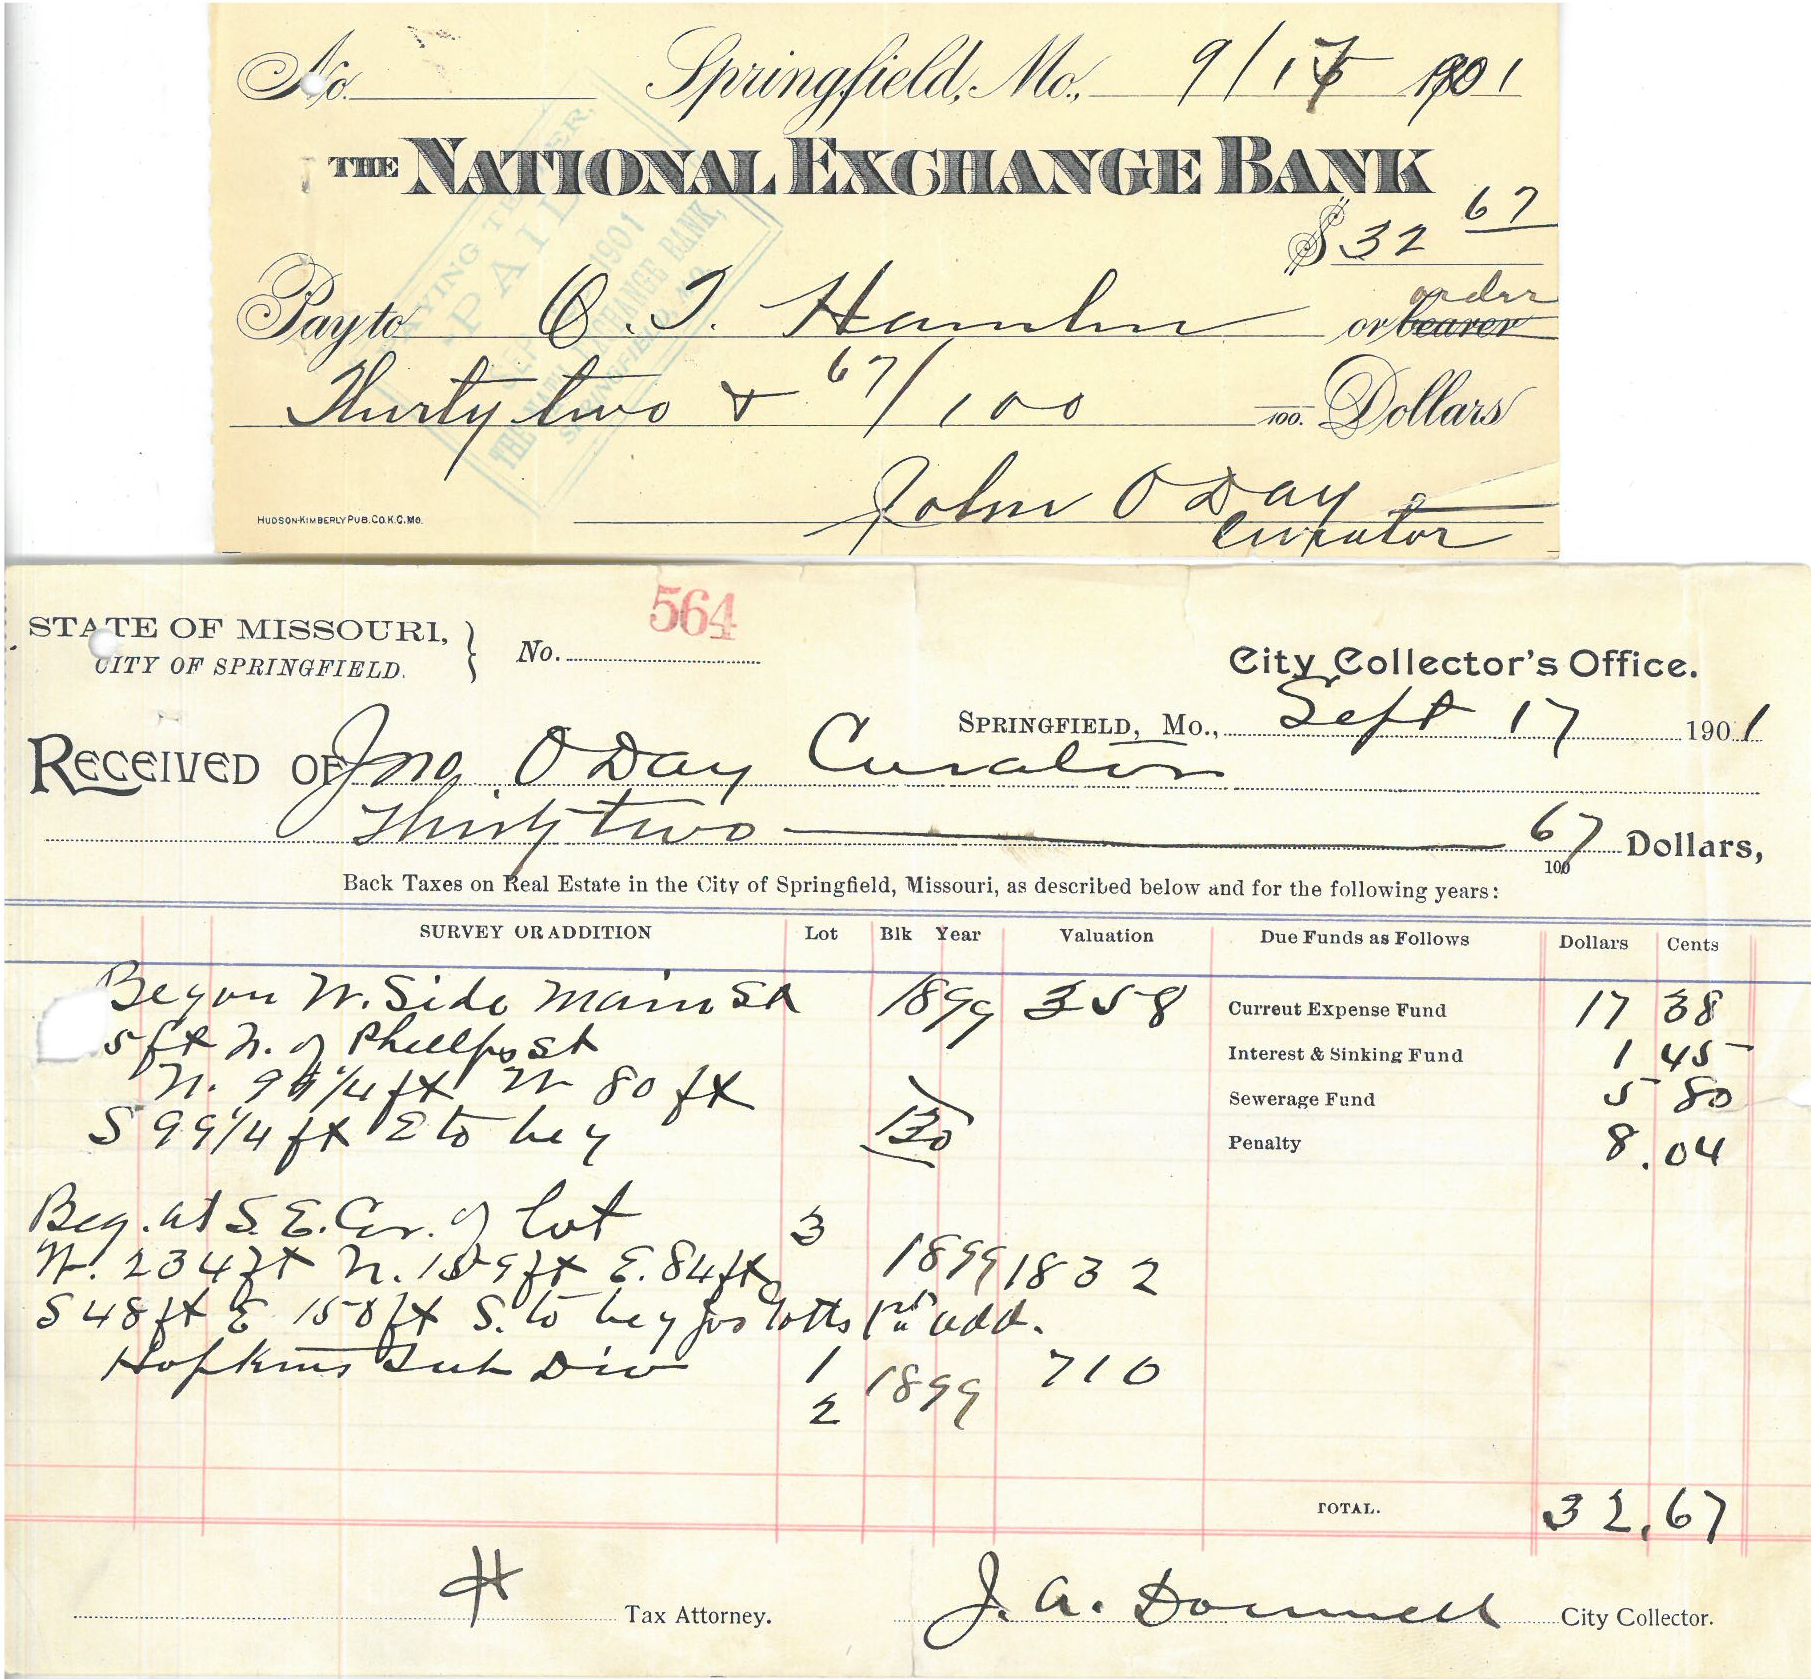 No. Springfield, Mo., 9/17 1901
THE NATIONAL EXCHANGE BANK
$32 67
order
Pay to O. T. Hamlin or bearer
Thirty two & 67/100 /100. Dollars
John O Day
Curator
HUDSON-KIMBERLY PUB. CO. K.C. MO.
PAYING TELLER.
PAID
1901
THE NAT'L EXCHANGE BANK,
SPRINGFIELD, MO
564
STATE OF MISSOURI,
CITY OF SPRINGFIELD.
No.
City Collector's Office.
SPRINGFIELD, Mo., Sept 17 1901
RECEIVED OF Jno. O Day Curator
Thirty two 67/100 Dollars,
Back Taxes on Real Estate in the City of Springfield, Missouri, as described below and for the following years:
SURVEY OR ADDITION Lot Blk Year Valuation Due Funds as Follows Dollars Cents
Beg on W. Side Main St 1899 358 Current Expense Fund 17 38
5 ft N. of Phelps St Interest & Sinking Fund 1 45
N. 99 1/4 ft W 80 ft Sewerage Fund 5 80
S 99 1/4 ft E to beg 130 Penalty 8.04
Beg. at S. E. Cor. of Lot 3
W. 234 ft N. 159 ft E. 84 ft 1899 1832
S 48 ft E 158 ft S. to beg Lotts 1st add.
Hopkins Sub Div 1 1899 710
2
TOTAL. 32.67
H Tax Attorney. J. A. Donnell City Collector.